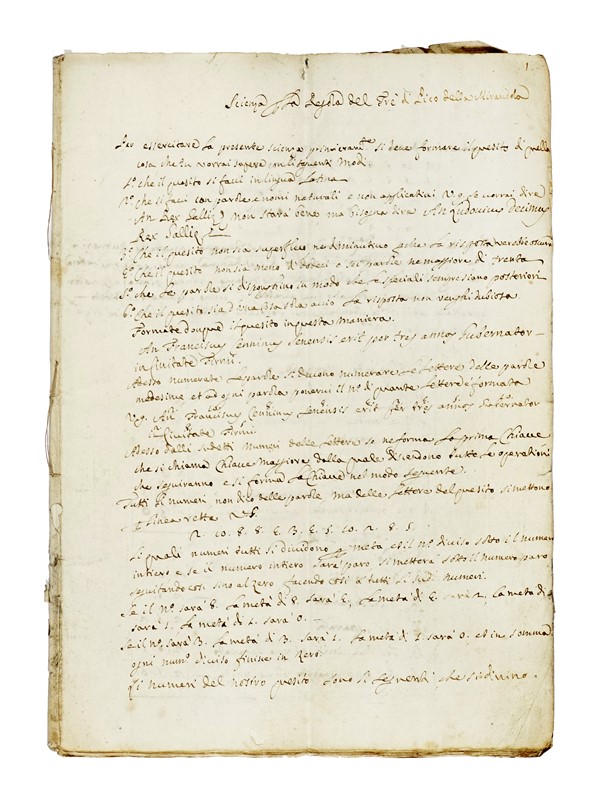 1
Scienza ossia Regola del Trè di Pico della Mirandola
Per esercitare la presente scienza primieramte si deve formare il quesito di quella
cosa che tu vorrai sapere con li seguenti Modi
1º che il quesito si facci in lingua Latina
2º che si facci con parole e nomi naturali e non applicativi V.g. se vorrai dire
An Rex Galliæ non starà bene ma bisogna dire An Ludovicus Decimus
Rex Galliæ
3º Che il quesito non sia superfluo ne diminutivo acciò la risposta verrebbe oscura
4º Che il quesito non sia meno di dodeci o sei parole ne maggiore di trenta
5º che le parole si disponghino in modo che le speciali sempre siano posteriori
6º che il quesito sia d'una cosa sola acciò la risposta non venghi dubiosa
Formate dunque il quesito in questa maniera.
An Franciscus Cenninus Senensis erit per tres annos Gubernator
in Civitate Firmi.
Adesso numerate le parole si devono numerare le lettere delle parole
medesime et ad ogni parola ponervi il nº di quante lettere è formata
V.g. An Franciscus Cenninus Senensis erit per tres annos Gubernator
in Civitate Firmi
Adesso dalli sudetti numeri delle lettere se ne forma la prima Chiave
che si chiama Chiave maggiore dalla quale discendono tutte le operationi
che seguiranno e si forma la Chiave nel modo seguente.
Tutti li numeri non dico delle parole ma delle lettere del quesito si mettono
p linea retta V.g.
2. 10. 8. 8. 4. 3. 4. 5. 10. 2. 8. 5.
li quali numeri tutti si dividono p metà et il nº diviso sotto il numero
intiero e se il numero intiero sarà paro si metterà sotto il numero paro
seguitando così sino al zero facendo così a tutti li sudi numeri.
Se il nº sarà 8. la metà di 8. sarà 4, la metà di 4. sarà 2, la metà di 2
sarà 1. la metà di 1. sarà 0.
Se il nº sarà 3. la metà di 3. sarà 1. la metà di 1. sarà 0. et in somma
ogni numº diviso finisce in zero.
Li numeri del nostro quesito sono li seguenti che si divino.